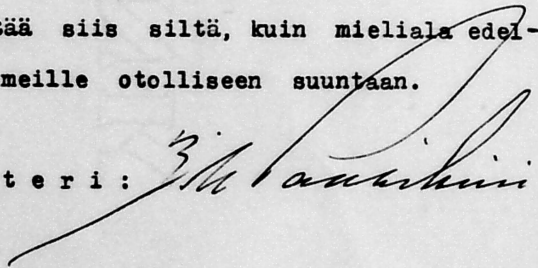 tää siis siltä, kuin mieliala edel-
meille otolliseen suuntaan.
t e r i :